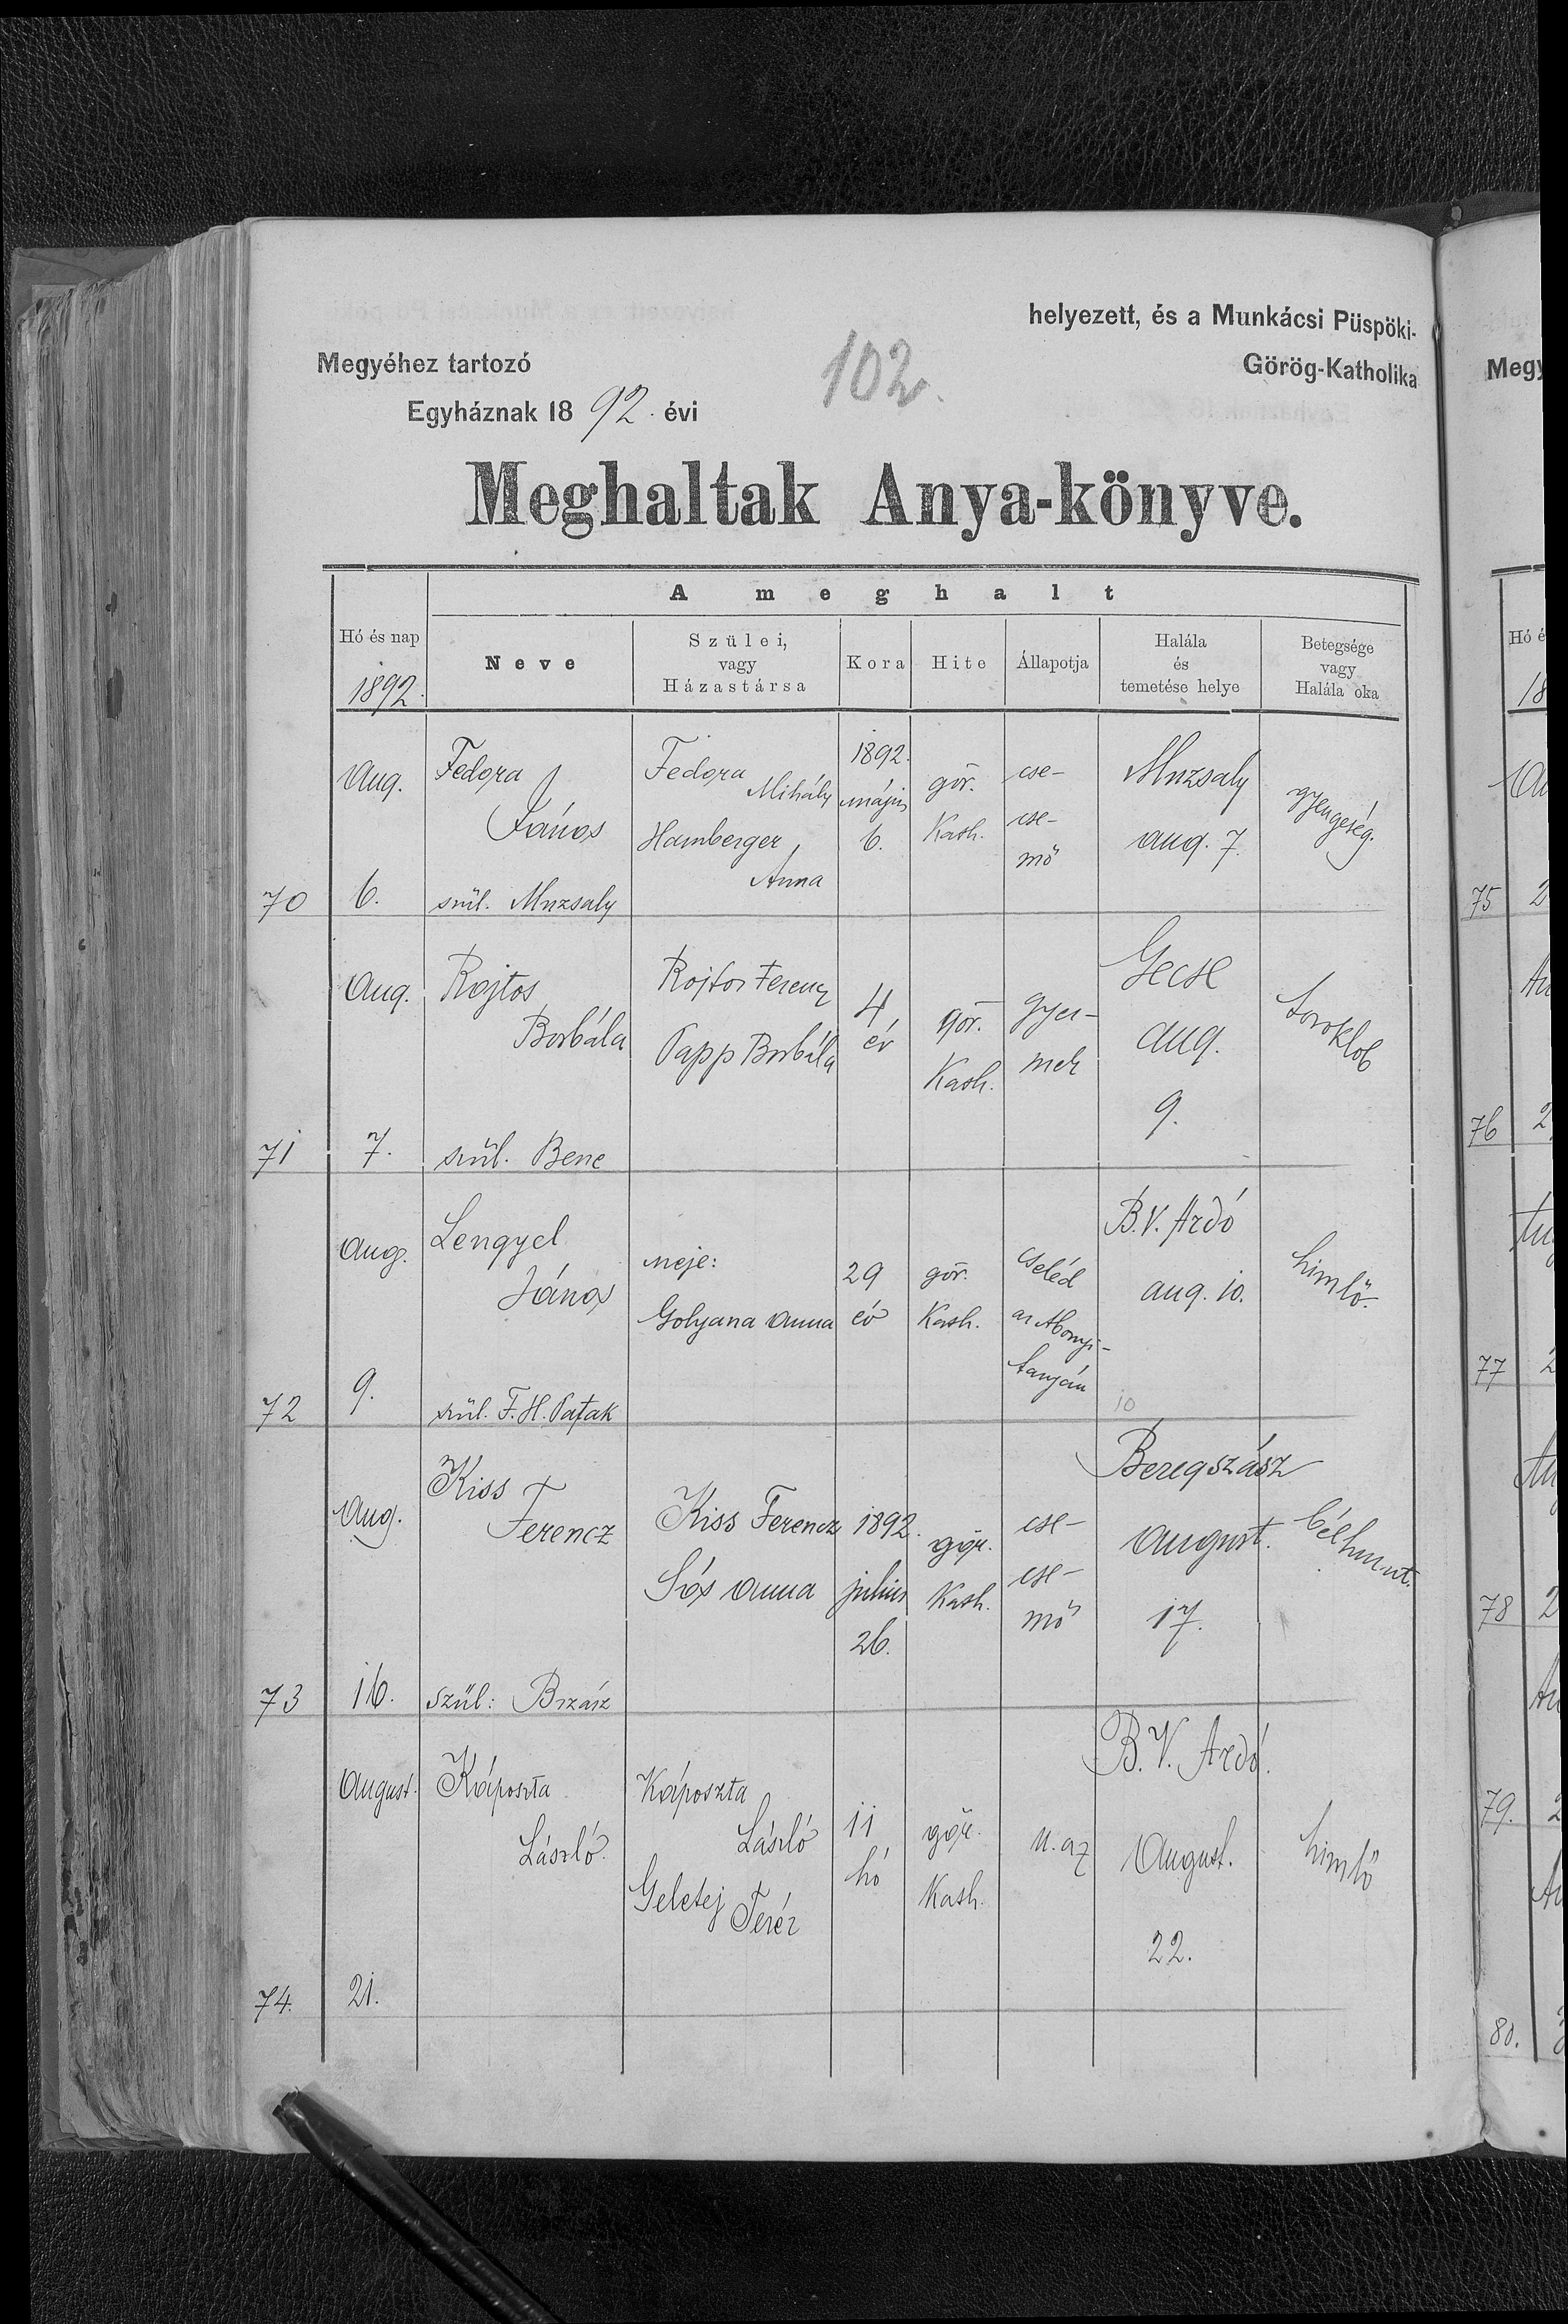 helyezett, és a Munkácsi Püspöki-
Megyéhez tartozó 102. Görög-Katholika
Egyháznak 1892. évi
Meghaltak Anya-könyve.
A meghalt
Hó és nap 1892.
Neve
Szülei,
vagy
Házastársa
Kora
Hite
Állapotja
Halála
és
temetése helye
Betegsége
vagy
Halála oka
70
Aug.
6.
Fedora
János
szül. Muzsaly
Fedora
Mihály
Hamberger
Anna
1892.
május
6.
gör.
Kath.
cse-
cse-
mő
Muzsaly
aug. 7.
gyengeség.
71
Aug.
7.
Rojtos
Borbála
szül. Bene
Rojtos Ferencz
Papp Borbála
4
év
gör.
Kath.
gyer-
mek
Gecse
aug.
9.
toroklob
72
Aug.
9.
Lengyel
János
szül. F. H. Patak
neje:
Golyana Anna
29
év
gör.
Kath.
cseléd
az Abonyi-
tanyán
B. V. Ardó
aug. 10.
10
himlő.
73
Aug.
16.
Kiss
Ferencz
szül: Bszász
Kiss Ferencz
Sós Anna
1892.
július
26.
gör.
Kath.
cse-
cse-
mő
Beregszász
august.
17.
bélhurut.
74.
August.
21.
Káposzta
László.
Káposzta
László
Geletej
Teréz
11
hó
gör.
Kath.
u. az
B. V. Ardó.
August.
22.
himlő
Megy
Hó é
18
75
2
76
2
77
2
78
2
79.
2
80.